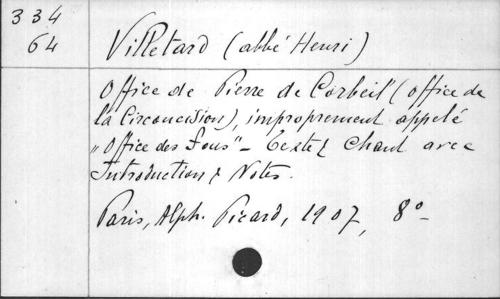 334
64
Villetard (abbé Henri)
Office de Pierre de Corbeil" (office de
la Circoncision), improprement appelé
„Office des Fous" - Texte & Chant avec
Introduction & Notes.
Paris, Alph. Picard, 1907, 8°-